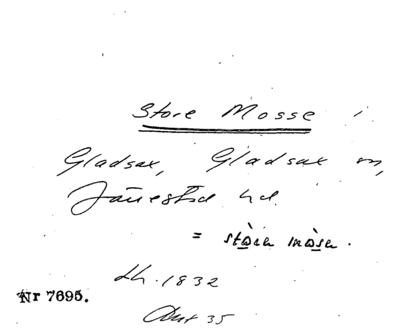 Store Mosse i
Gladsax, Gladsax sn,
Järrestad hd.
= stòra mòsa.
Lh. 1832
Akt 35
Nr 7695.